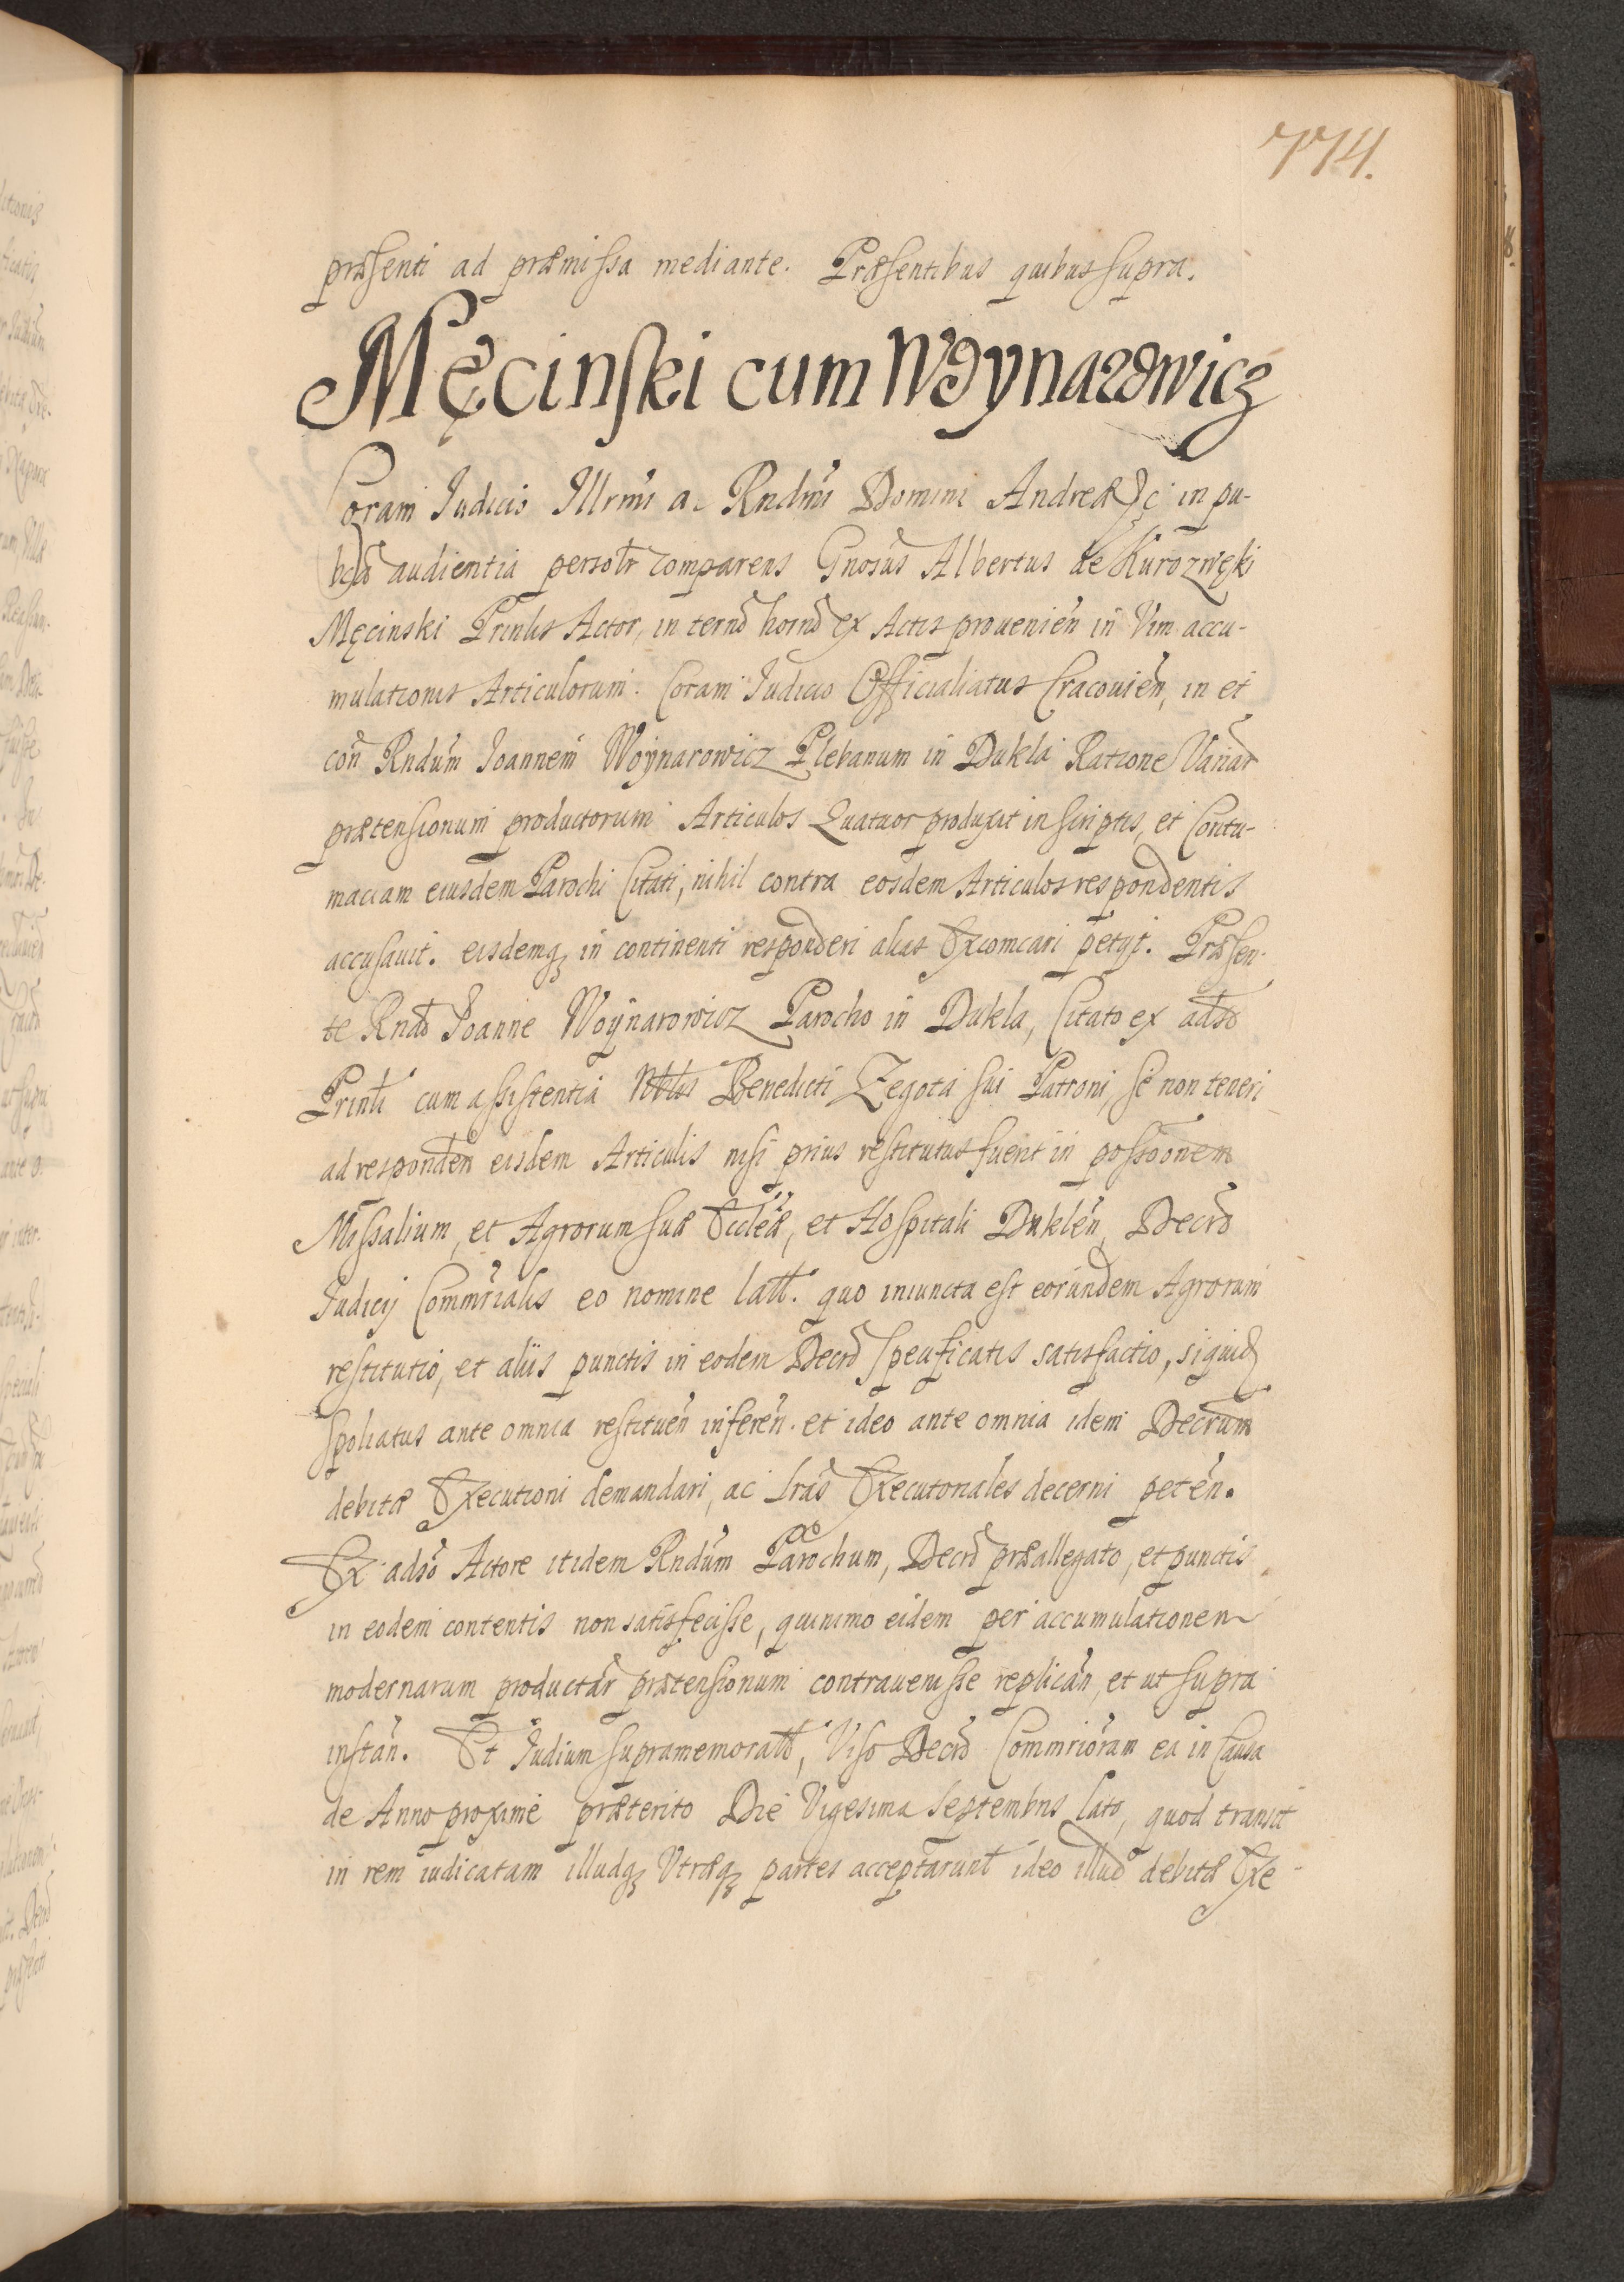 774.
præsenti ad præmissa mediante. Præsentibus quibus supra.
Męcinski cum Woynarowicz
Coram Judicio Illrmi a. Rndmi Domini Andreæ &c in pu-
blca audientia persolr comparens Gnosus Albertus de Kurozwęki
Męcinski Prinlis Actor, in termo horno ex Actis prouenien in Vim accu-
mulationis Articulorum. Coram Judicio Officialiatus Cracouien, in et
con Rndum Joannem Woynarowicz Plebanum in Dukla Ratione Variar
prætensionum productorum Articulos Quatuor produxit in scriptis, et Contu-
maciam eiusdem Parochi Citati, nihil contra eosdem Articulos respondentis
accusauit. eisdemq in continenti responderi alias Excomcari petijt. Præsen-
te Rndo Joanne Woynarowicz Parocho in Dukla, Citato ex adso
Prinli cum assistentia Nblis Benedicti Zegota sui Patroni, se non teneri
ad responden eisdem Articulis nisi prius restitutus fuerit in possoonem
Missalium, et Agrorum suæ Eccleæ, et Hospitali Duklen, Decro
Judicij Commrialis eo nomine latt. quo iniuncta est eorundem Agrorum
restitutio, et aliis punctis in eodem Decro specificatis satisfactio, siquid
spoliatus ante omnia restituen inferen. et ideo ante omnia idem Decrum
debitæ Executioni demandari, ac lras Executoriales decerni peten.
Ex adso Actore itidem Rndum Parochum, Decro præallegato, et punctis
in eodem contentis non satisfecisse, quinimo eidem per accumulationem
modernarum productar prætensionum contrauenisse replican, et ut supra
instan. Et Judium supramemoratt, Viso Decro Commrioram ea in Causa
de Anno proxime præterito Die Vigesima Septembris lato, quod transit
in rem iudicatam illudq Vtræq partes acceptarunt ideo illud debitæ Exe-